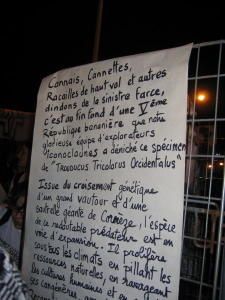 Cannais, Cannettes,
Racailles de haut vol et autres
dindons de la sinistre farce,
c'est au fin fond d'une Vème
République bananière que notre
glorieuse équipe d'explorateurs
Iconoclounes a déniché ce spécimen
de "TROUDUCUS TRICOLORUS OCCIDENTALUS"
Issue du croisement génétique
d'un grand vautour et d'une
sautrelle géante de Corrèze, l'espèce
de ce redoutable prédateur est en
voie d'expansion. Il prolifère
sous tous les climats en pillant les
ressources naturelles, en ravageant
les cultures humaines et en
ses congénères,